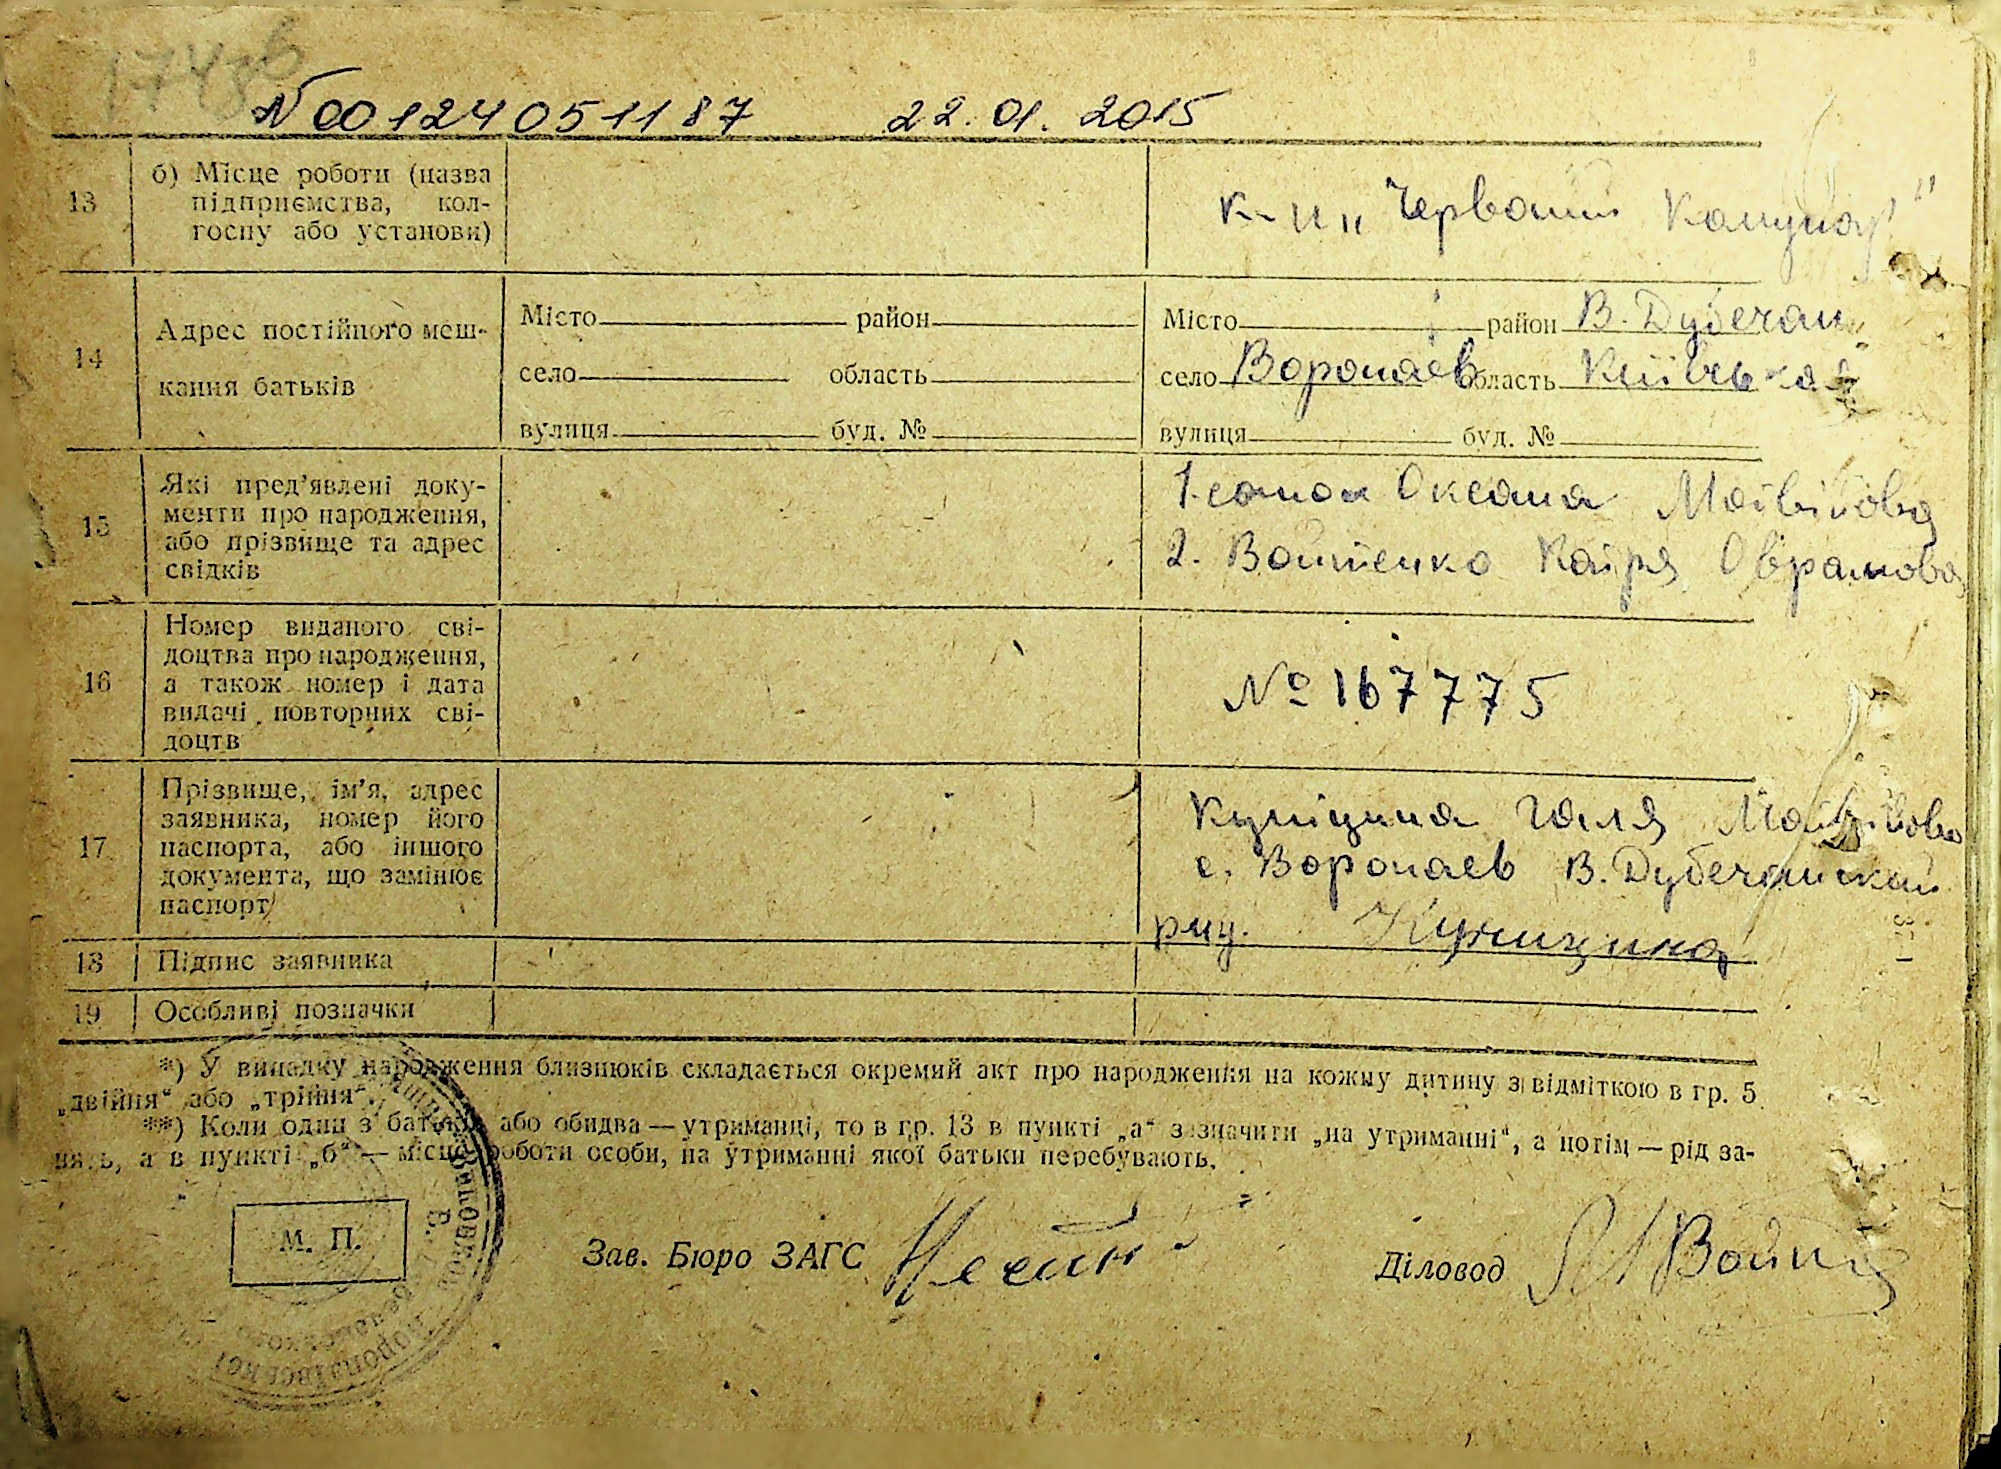 174зв
№00124051187 22.01.2015
13 б) Місце роботи (назва
підприємства, кол-
госпу або установи)
к-п „Червоний Комунар"
14 Адрес постійного меш-
кання батьків
Місто район
село область
вулиця буд. №
Місто район В. Дубечан.
село Воропаєв область Київська
вулиця буд. №
15 Які пред'явлені доку-
менти про народження,
або прізвище та адрес
свідків
1. Оксана Матвіївна
2. Войтенко Оврамовна
16 Номер виданого сві-
доцтва про народження,
а також номер і дата
видачі повторних сві-
доцтв
№ 167775
17 Прізвище, ім'я, адрес
заявника, номер його
паспорта, або іншого
документа, що замінює
паспорт
Куніцина Галя Матвіївна
с. Воропаєв В. Дубечанский
18 Підпис заявника
19 Особливі позначки
*) У випадку народження близнюків складається окремий акт про народження на кожну дитину з відміткою в гр. 5
„двійня“ або „трійня“.
**) Коли один з батьків або обидва — утриманці, то в гр. 13 в пункті „а“ зазначити „на утриманні“, а потім — рід за-
нять, а в пункті „б“ — місце роботи особи, на утриманні якої батьки перебувають.
М. П.
Зав. Бюро ЗАГС
Діловод